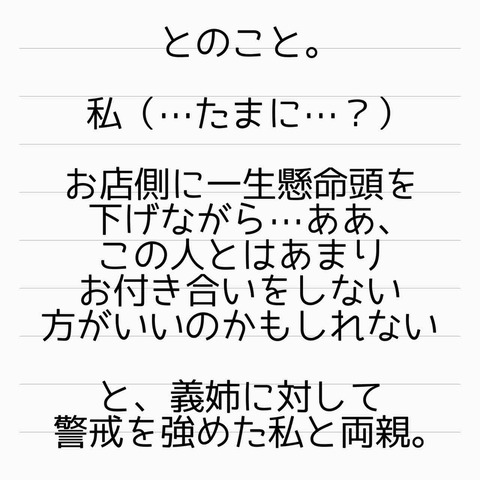 とのこと。
私（…たまに…？）
お店側に一生懸命頭を
下げながら…ああ、
この人とはあまり
お付き合いをしない
方がいいのかもしれない
と、義姉に対して
警戒を強めた私と両親。